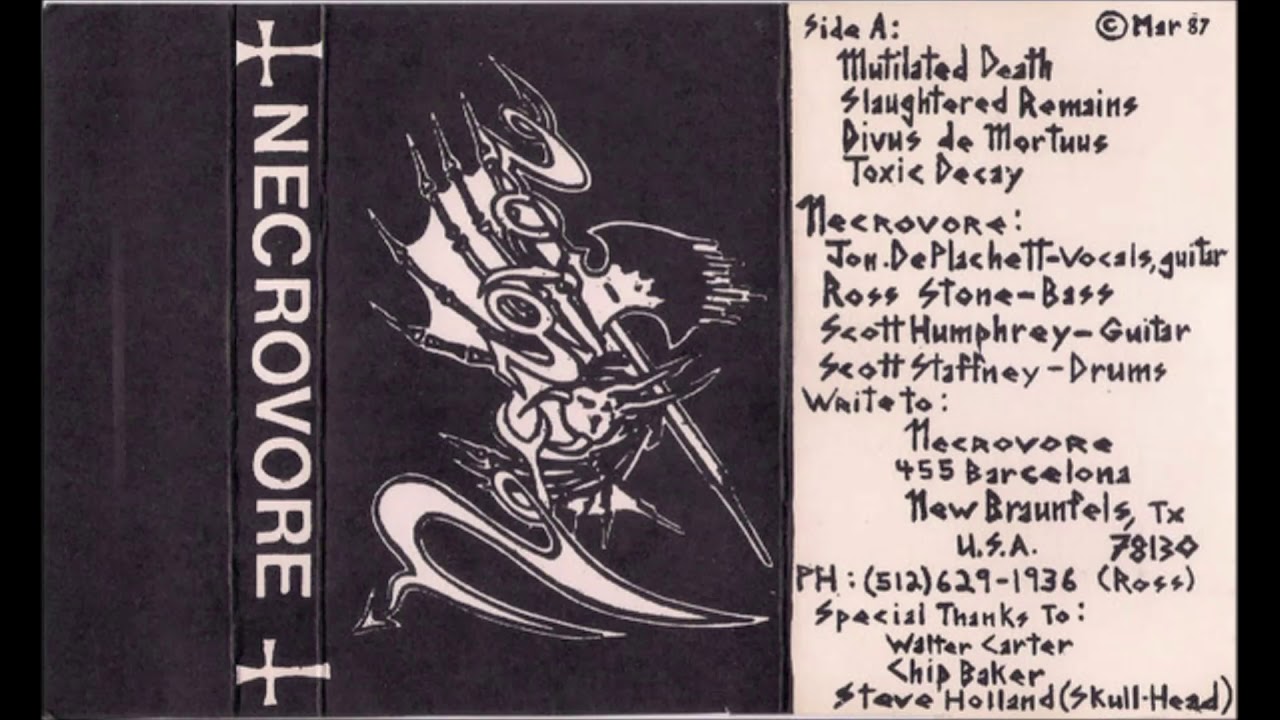 NECROVORE
Necrovore
Side A: © Mar 87
Mutilated Death
Slaughtered Remains
Divus de Mortuus
Toxic Decay
Necrovore:
Jon.DePlachett-Vocals,guitar
Ross Stone-Bass
Scott Humphrey-Guitar
Scott Staffney-Drums
Write to:
Necrovore
455 Barcelona
New Braunfels, Tx
U.S.A. 78130
PH: (512)629-1936 (Ross)
Special Thanks To:
Walter Carter
Chip Baker
Steve Holland(Skull-Head)